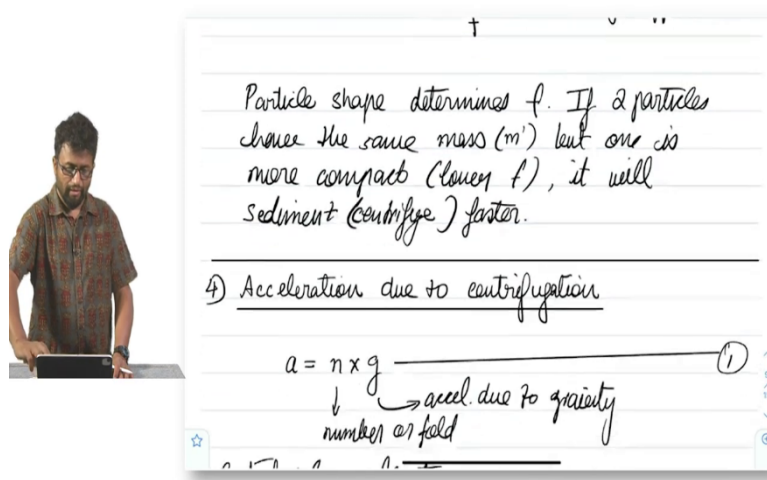 Particle shape determines f. If 2 particles
have the same mass (m') but one is
more compact (lower f), it will
sediment (centrifuge) faster.
4) Acceleration due to centrifugation
a = n x g ——— 1
↓ → accel. due to gravity
number or fold